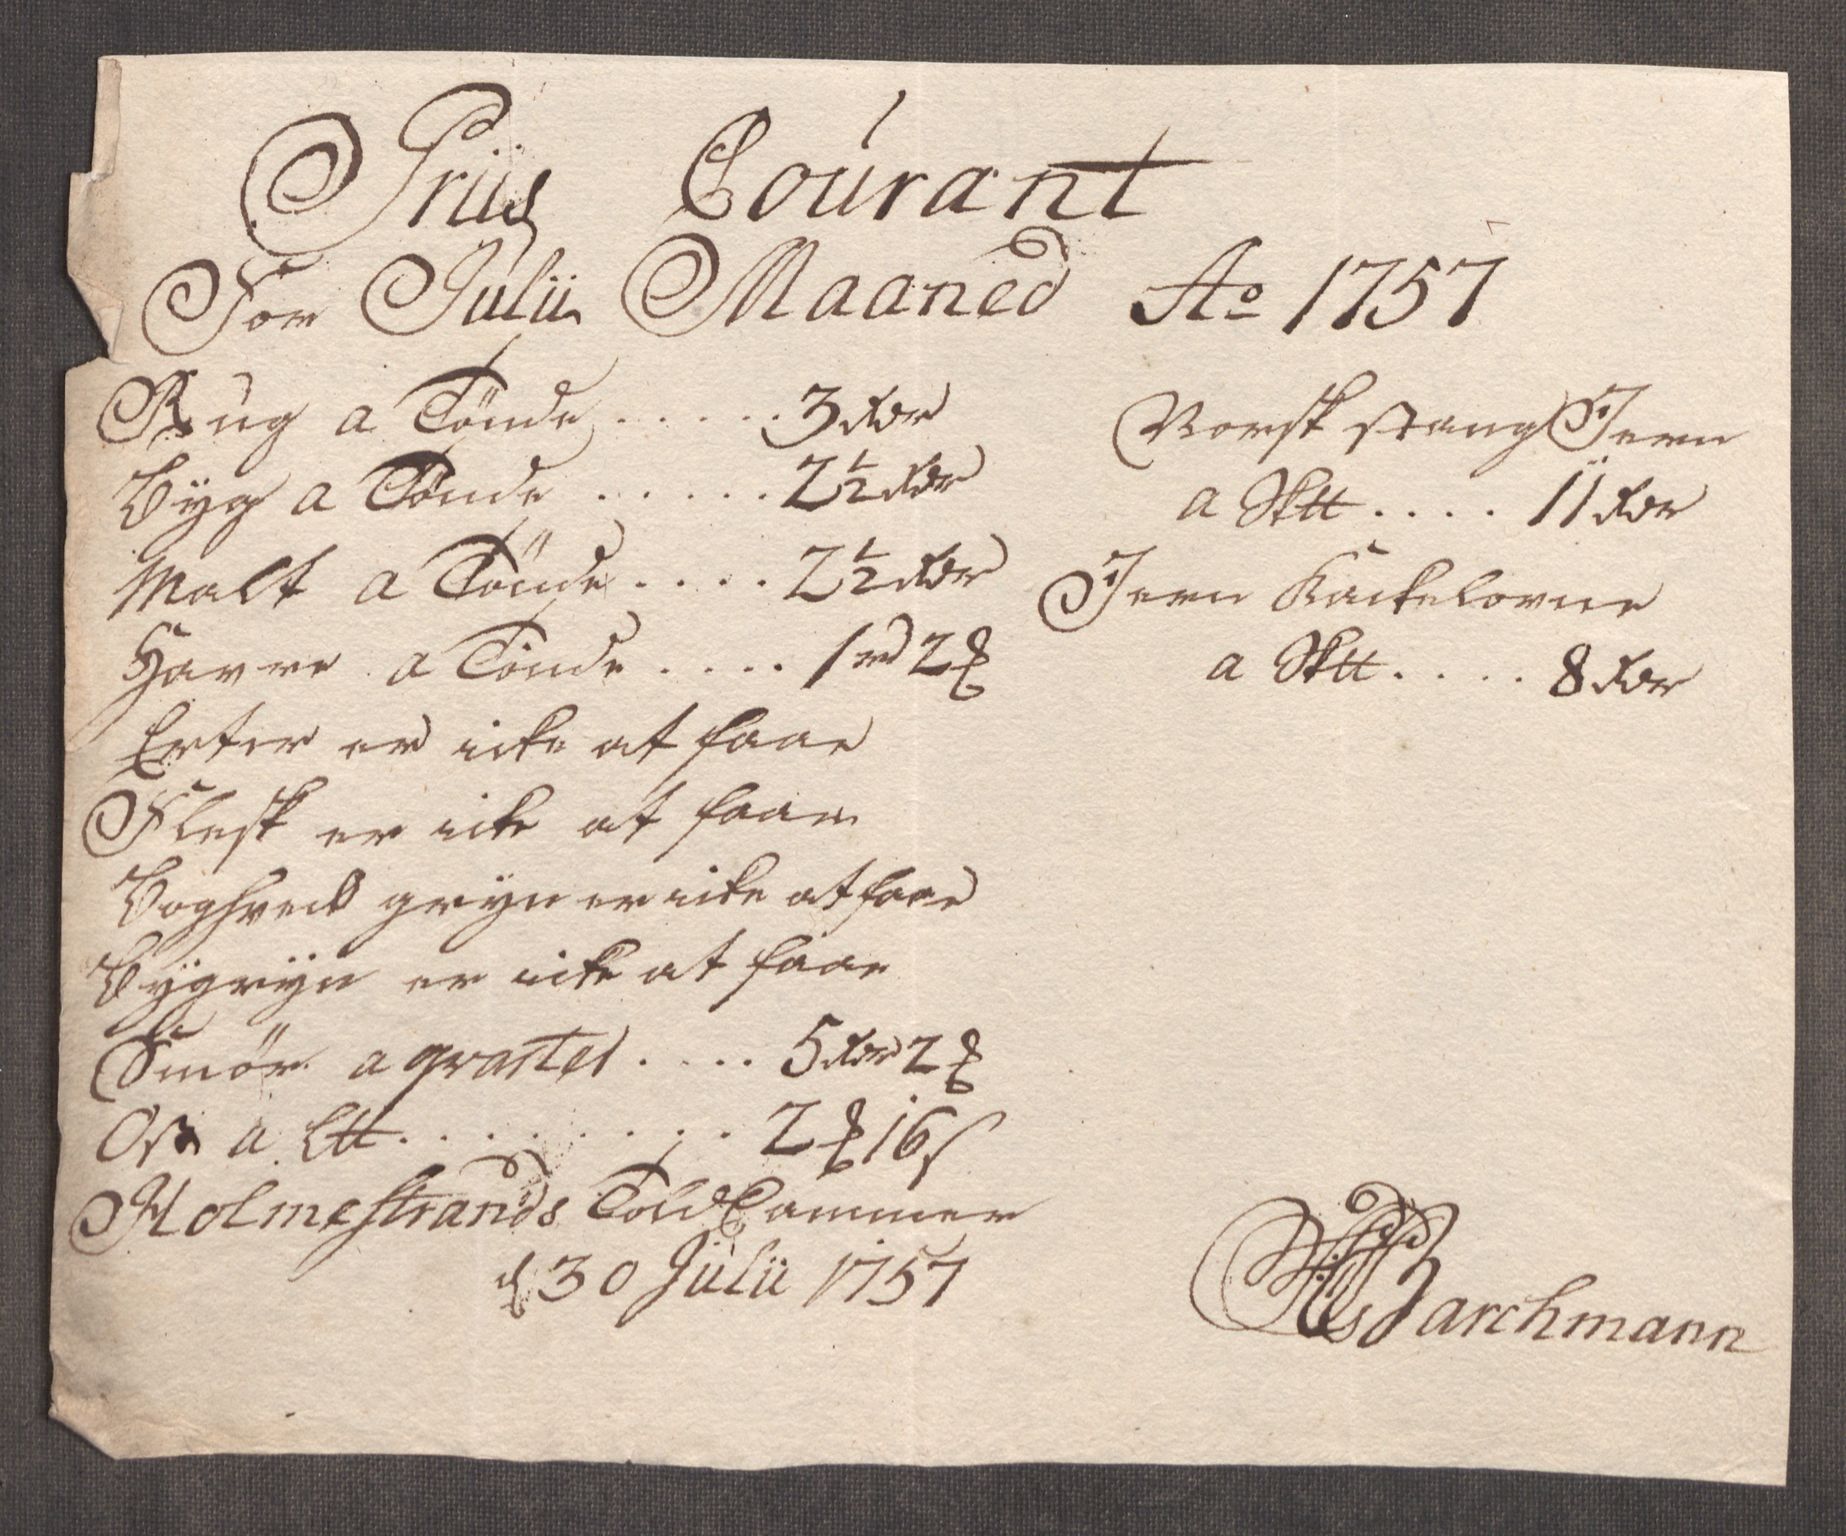 Priis Courant
For Julii Maaned Ao 1757
Rug a Tönde . . . . . 3 rdr
Byg a Tönde . . . . . 2½ rdr
Malt a Tönde . . . . 2½ rdr
Havre a Tönde . . . . 1 rd 2 ꝑ
Erter er icke at faae
Flesk er icke at faae
Boghved gryn er icke at faae
Bygryn er icke at faae
Smör a qvartel . . . . 5 rdr 2 ꝑ
Ost a Ltt . . . . . . . . . 2 ꝑ 16 s
Holmestrands Told Cammer
d 30 Julii 1757
Norsk stang Jern
a Sktt . . . . 11 rdr
Jern Kackelovne
a Sktt . . . . 8 rdr
Barchmann